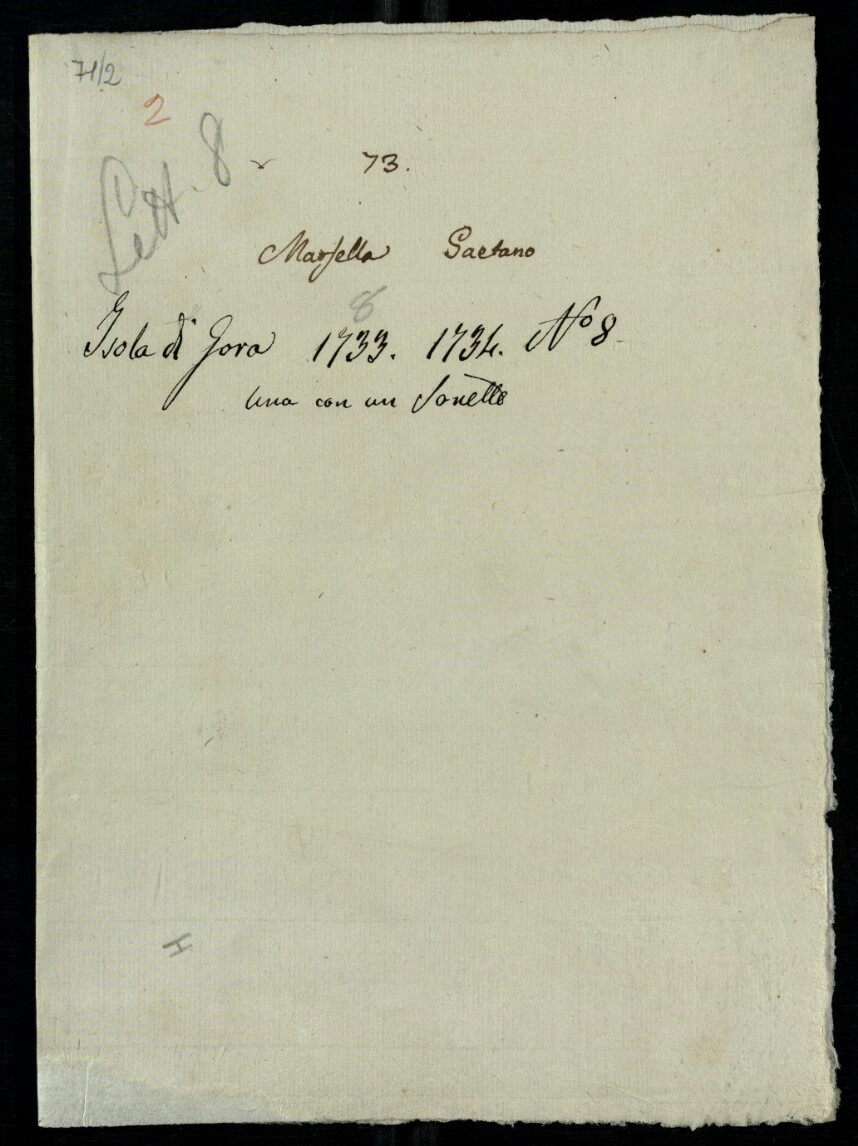 71/2
2
Lett. 8
73.
Marsella Gaetano
8
Isola di Sora 1733. 1734. Nº 8
una con un Sonetto